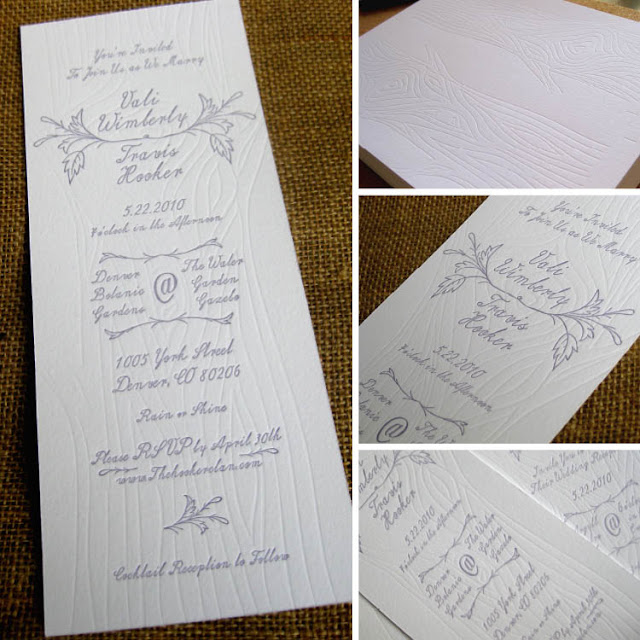 You're Invited
To Join Us as We Marry
Vali
Wimberly
Travis
Hooker
5.22.2010
in the Afternoon
Denver
Botanic
Gardens
@
The Water
Garden
Gazebo
1005 York Street
Denver, CO 80206
Rain or Shine
Please RSVP by April 30th
Cocktail Reception to Follow
You're Invited
To Join Us as We Marry
Vali
Wimberly
Travis
Hooker
5.22.2010
in the Afternoon
@
The Wa
Wimberly
Travis
Hooker
5.22.2010
in the Afternoon
@
The Water
Garden
Gazebo
1005 York Street
Denver, CO 80206
5.22.2010
@